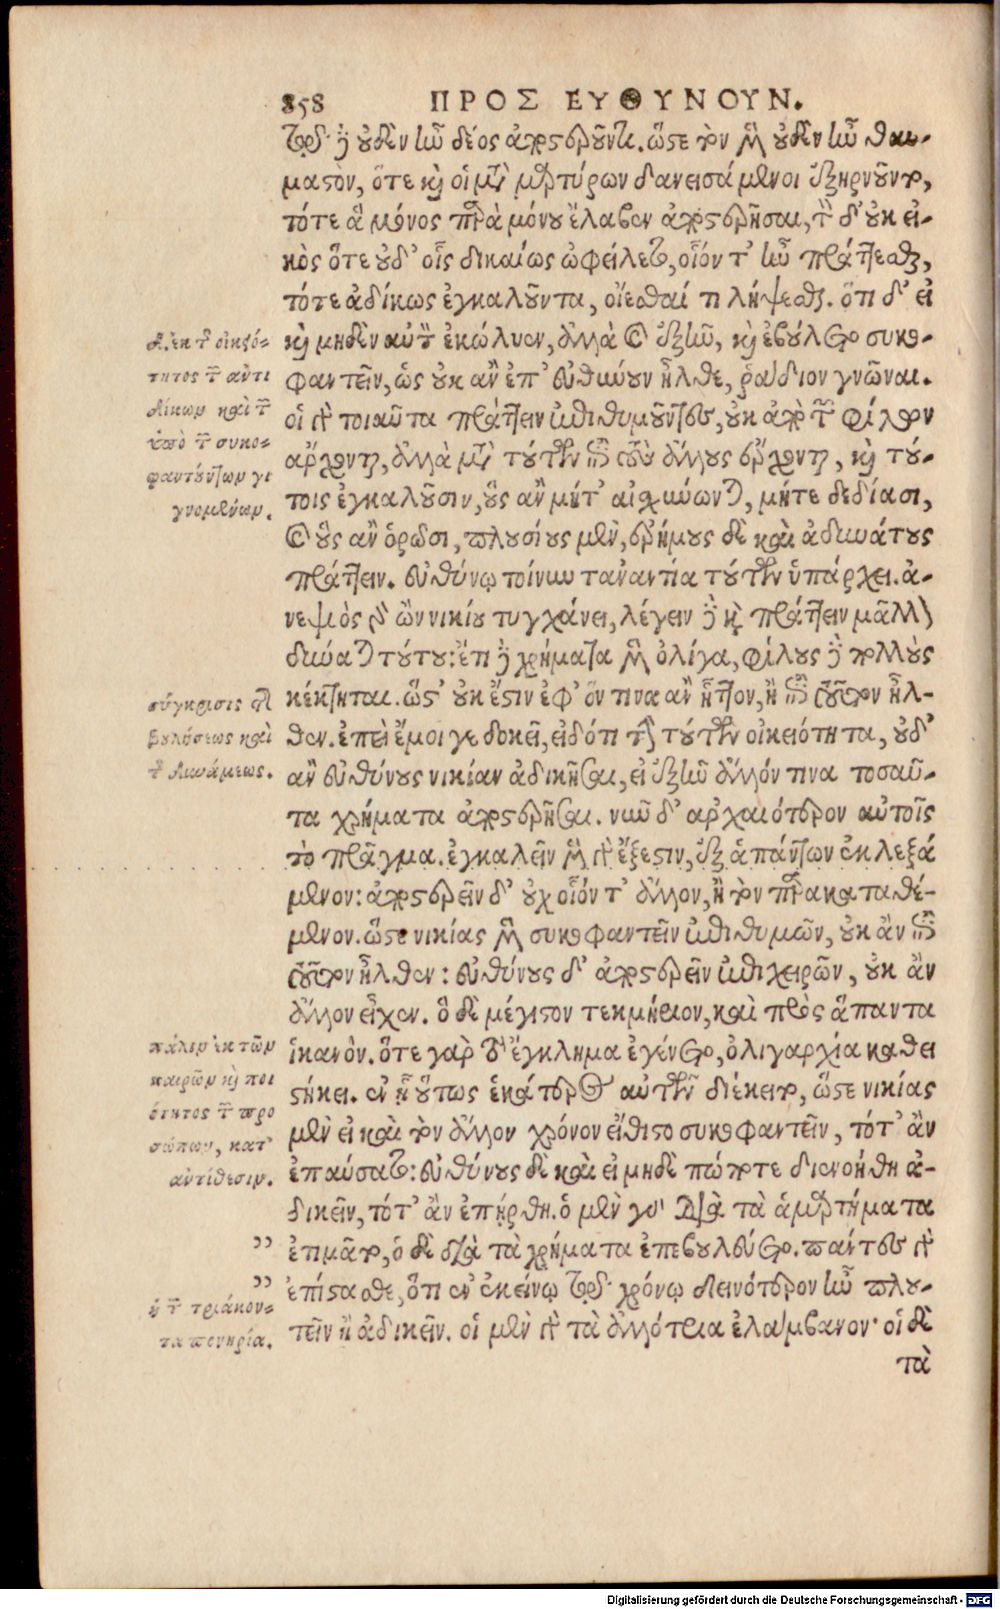 858 ΠΡΟΣ ΕΥΘΥΝΟΥΝ.
τῷ δὲ οὐδὲν ἦν δέος ἀποστεροῦντι. ὥστε τὸν μὲν οὐδὲν ἦν θαυ-
μαστὸν, ὅτε καὶ οἱ μετὰ μαρτύρων δανεισάμενοι ἐξηρνοῦντο,
τότε ἃ μόνος παρὰ μόνου ἔλαβεν ἀποστερῆσαι, τὸν δ᾽ οὐκ εἰ-
κὸς ὅτε οὐδ᾽ οἷς δικαίως ὠφείλετο, οἷόν τ᾽ ἦν πράττεσθαι,
τότε ἀδίκως ἐγκαλοῦντα, οἴεσθαί τι λήψεσθαι. ὅτι δ᾽ εἰ
καὶ μηδὲν αὐτὸν ἐκώλυεν, ἀλλὰ καὶ ἐξῆν, καὶ ἐβούλετο συκο-
φαντεῖν, ὡς οὐκ ἂν ἐπ᾽ εὐθύνουν ἦλθε, ῥᾴδιον γνῶναι.
οἱ γὰρ τοιαῦτα πράττειν ἐπιθυμοῦντες, οὐκ ἀπὸ τῶν φίλων
ἄρχονται, ἀλλὰ μετὰ τούτων ἐπὶ τοὺς ἄλλους ἔρχονται, καὶ τού-
τοις ἐγκαλοῦσιν, οὓς ἂν μήτ᾽ αἰσχύνωνται, μήτε δεδίασι,
καὶ οὓς ἂν ὁρῶσι, πλουσίους μὲν, ἐρήμους δὲ καὶ ἀδυνάτους
πράττειν. εὐθύνῳ τοίνυν τἀναντία τούτων ὑπάρχει. ἀ-
νεψιὸς γὰρ ὢν νικίου τυγχάνει, λέγειν δὲ καὶ πράττειν μᾶλλον
δύναται τούτου: ἔτι δὲ χρήματα μὲν ὀλίγα, φίλους δὲ πολλοὺς
κέκτηται. ὥστ᾽ οὐκ ἔστιν ἐφ᾽ ὅν τινα ἂν ἧττον, ἢ ἐπὶ τοῦτον ἦλ-
θεν. ἐπεὶ ἔμοιγε δοκεῖ, εἰδότι τὴν τούτων οἰκειότητα, οὐδ᾽
ἂν εὐθύνους νικίαν ἀδικῆσαι, εἰ ἐξῆν ἄλλόν τινα τοσαῦ-
τα χρήματα ἀποστερῆσαι. νῦν δ᾽ ἀρχαιότερον αὐτοῖς
τὸ πρᾶγμα. ἐγκαλεῖν μὲν γὰρ ἔξεστιν, ἐξ ἁπάντων ἐκλεξά
μενον: ἀποστερεῖν δ᾽ οὐχ οἷόν τ᾽ ἄλλον, ἢ τὸν παρακαταθέ-
μενον. ὥστε νικίας μὲν συκοφαντεῖν ἐπιθυμῶν, οὐκ ἂν ἐπὶ
τοῦτον ἦλθεν: εὐθύνους δ᾽ ἀποστερεῖν ἐπιχειρῶν, οὐκ ἂν
ἄλλον εἶχεν. ὃ δὲ μέγιστον τεκμήριον, καὶ πρὸς ἅπαντα
ἱκανὸν. ὅτε γὰρ τὸ ἔγκλημα ἐγένετο, ὀλιγαρχία καθει
στήκει. ἐν ᾗ οὕτως ἑκάτερος αὐτῶν διέκειτο, ὥστε νικίας
μὲν εἰ καὶ τὸν ἄλλον χρόνον εἴθιστο συκοφαντεῖν, τότ᾽ ἂν
ἐπαύσατο: εὐθύνους δὲ καὶ εἰ μηδὲ πώποτε διενοήθη ἀ-
δικεῖν, τότ᾽ ἂν ἐπήρθη. ὁ μὲν γὰρ διὰ τὰ ἁμαρτήματα
ἐτιμᾶτο, ὁ δὲ διὰ τὰ χρήματα ἐπεβουλεύετο. πάντες γὰρ
ἐπίστασθε, ὅτι ἐν ἐκείνῳ τῷ χρόνῳ δεινότερον ἦν πλου-
τεῖν ἢ ἀδικεῖν. οἱ μὲν γὰρ τὰ ἀλλότρια ἐλάμβανον· οἱ δὲ
τὰ
δ. ἐκ τῆς οἰκειό-
τητος τῶν ἀντι
δίκων καὶ τῶν
ὑπὸ τῶν συκο-
φαντούντων γι
γνομένων.
σύγκρισις τῆς
βουλήσεως καὶ
τῆς δυνάμεως.
πάλιν ἐκ τῶν
καιρῶν καὶ ποι
ότητος τῶν προ
σώπων, κατ᾽
ἀντίθεσιν.
,,
,,
ἡ τῶν τριάκον-
τα πονηρία.
Digitalisierung gefördert durch die Deutsche Forschungsgemeinschaft - DFG